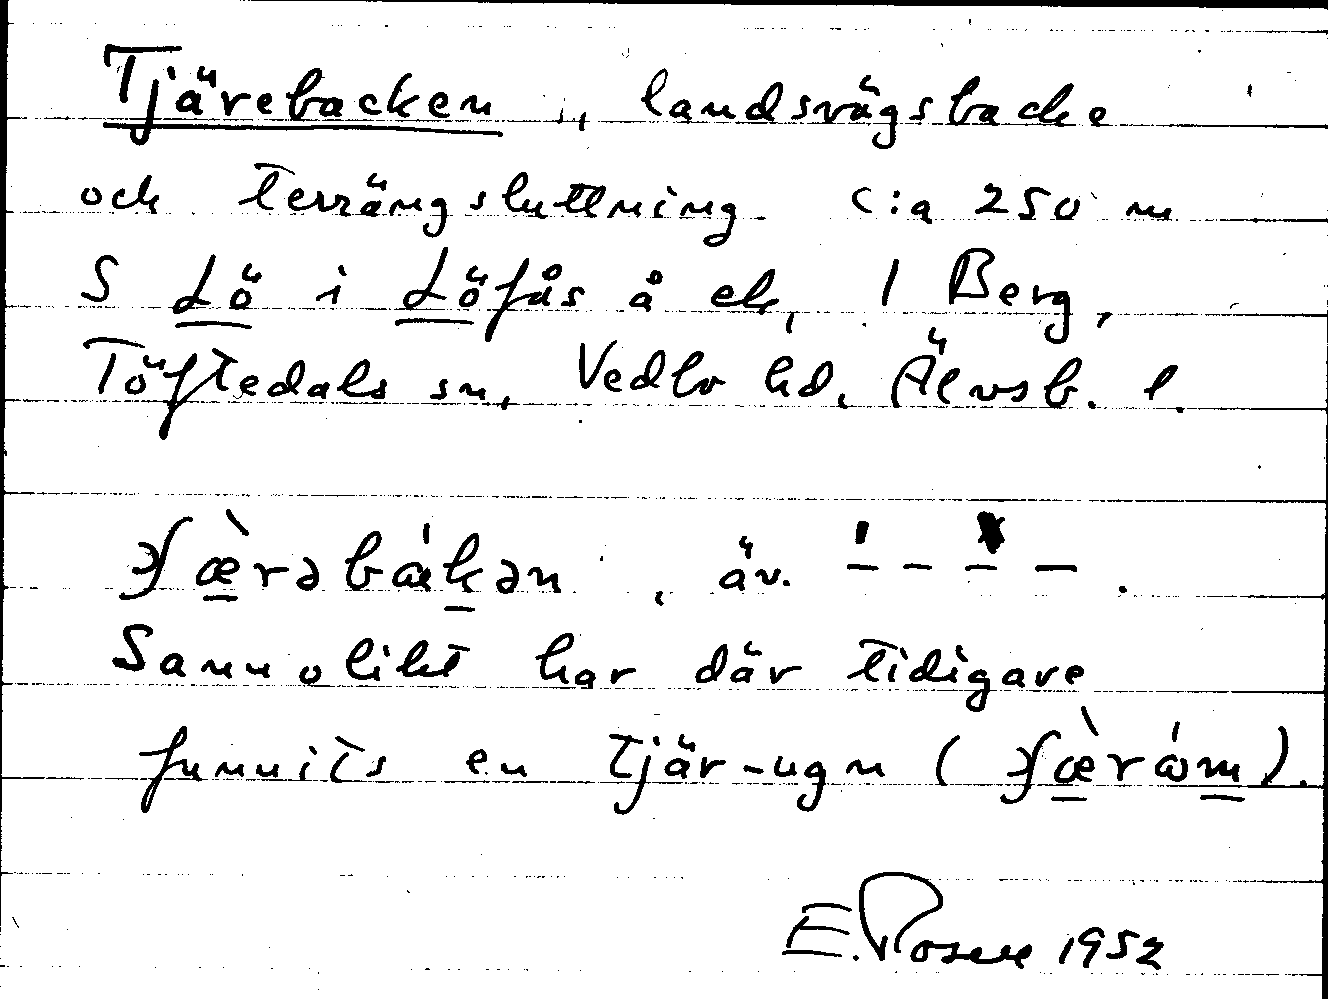 Tjärebacken, landsvägsbacke
och terrängsluttning c:a 250 m
S Lö i Löfås å ek, 1 Berg,
Töftedals sn, Vedbo hd. Älvsb. l.
äv.
Sannolikt har där tidigare
funnits en tjär-ugn
E. Rosell 1952